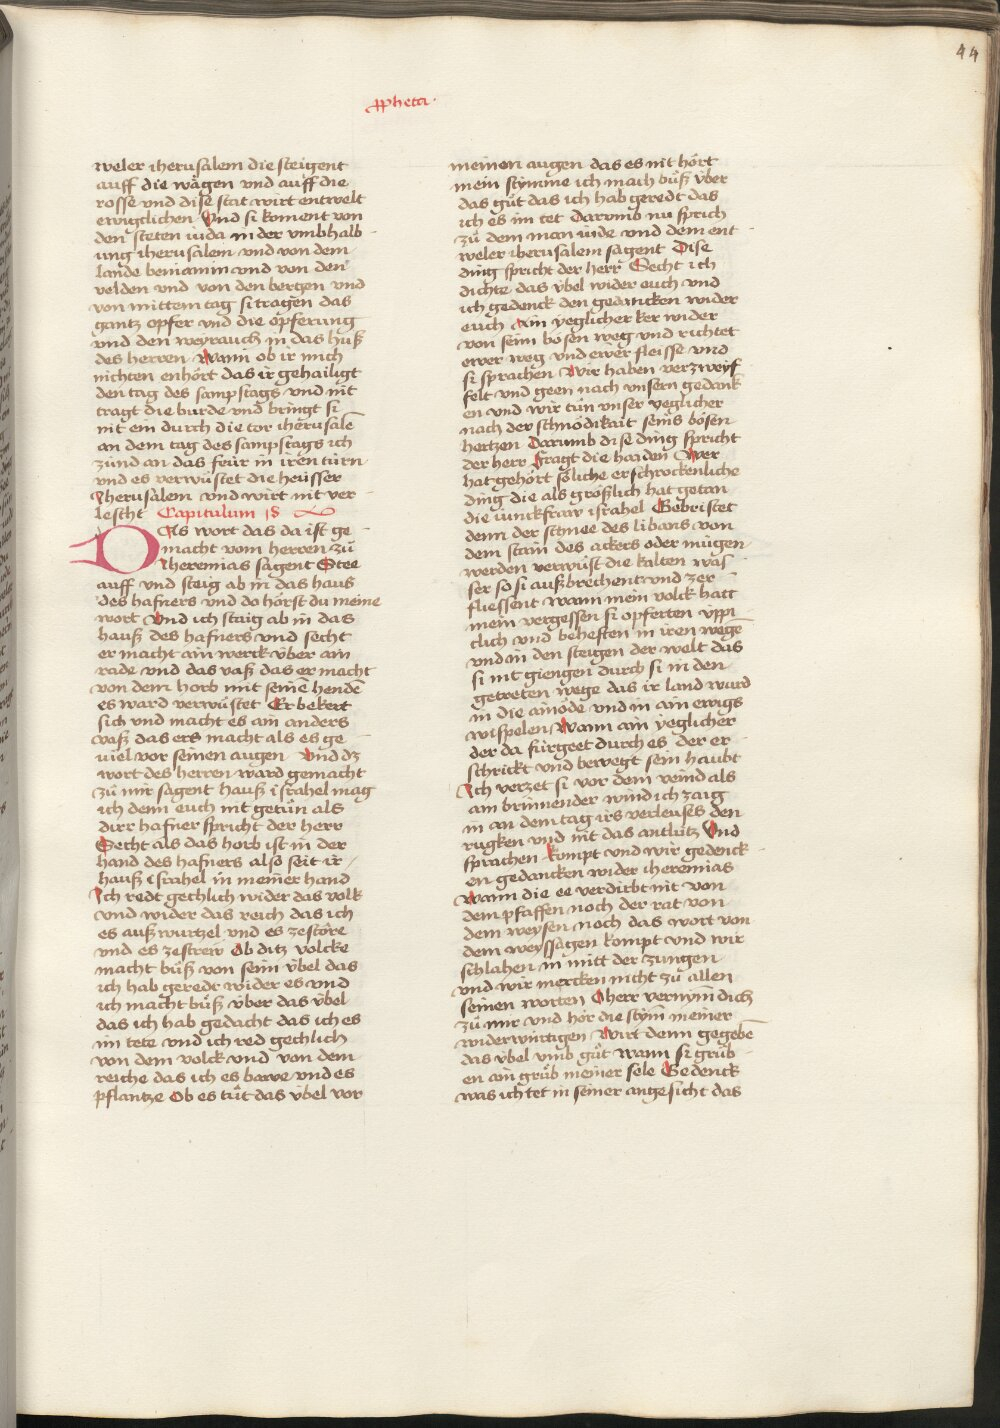 44
ppheta ·
weler iherusalem die steigent
auff die wägen vnd auff die
rosse vnd dise stat wirt entwelt
ewigclichen Vnd si koment von
den steten iuda in der vmbhalb
ung iherusalem vnd von dem
lande beniamin vnd von den
velden vnd von den bergen vnd
von mittem tag si tragen das
gantz opfer vnd die opferung
vnd den weyrauch in das huß
des herren Wann ob ir mich
nichten enhört das ir gehailigt
den tag des sampstags vnd nit
tragt die burde vnd bringt si
nit ein durch die tor iherusalē
an dem tag des sampstags ich
zünd an das feür in iren türn
vnd es verwüstet die heüsser
Iherusalem vnd wirt nit ver
lescht Capitulum 18
DAs wort das da ist ge
macht vom herren zů
Iheremias sagent Stee
auff vnd steig ab in das haus
des hafners vnd do hörst du meine
wort Vnd ich staig ab in das
hauß des hafners vnd secht
er macht ain werck vber ain
rade vnd das vaß das er macht
von dem horb mit seinē hendē
es ward verwüstet Er bekert
sich vnd macht es ain anders
vaß das ers macht als es ge
uiel vor seinen augen Vnd dz
wort des herren ward gemacht
zů mir sagent hauß israhel mag
ich denn euch nit getůn als
dirr hafner spricht der herr
Secht als das horb ist in der
hand des hafners also seit ir
hauß israhel in meiner hand
Ich redt gechlich wider das volk
vnd wider das reich das ich
es auß wurtzel vnd es zestöre
vnd es zestrew Ob ditz volcke
macht bůß von seim vbel das
ich hab geredt wider es vnd
ich macht bůß vber das vbel
das ich hab gedacht das ich es
im tete vnd ich red gechlich
von dem volck vnd von dem
reiche das ich es bawe vnd es
pflantze Ob es tůt das vbel vor
meinen augen das es nit hört
mein stymme ich mach bůß vber
das gůt das ich hab geredt das
ich es im tet Darumb nu sprich
zů dem man iude vnd dem ent
weler iherusalem sagent Dise
ding spricht der herr Secht ich
dichte das vbel wider euch vnd
ich gedenck den gedancken wider
euch Ain yeglicher ker wider
von seim bösen weg vnd richtet
ewer weg vnd ewer fleisse vnd
si sprachen Wir haben verzweyf
felt vnd geen nach vnsern gedank
en vnd wir tůn vnser yeglicher
nach der schnödikait seins bösen
hertzen Darumb dise ding spricht
der herr Fragt die haiden Wer
hat gehört söliche erschrockenliche
ding die als größlich hat getan
die iunckfraw israhel Gebristet
denn der schnee des libans von
dem stain des ackers oder mügen
werden verwüst die kalten was
ser so si außbrechent vnd zer
fliessent wann mein volck hatt
mein vergessen si opferten vppi
clich vnd behesten in iren wegē
vnd in den steigen der welt das
si nit giengen durch si in den
getreten wege das ir land wurd
in die ainöde vnd in ain ewigs
wispelen Wann ain yeglicher
der da fürgeet durch es der er
schrickt vnd bewegt sein haubt
Ich verzet si vor dem veind als
ain brinnender wind ich zaig
in an dem tag irs verleuses den
rugken vnd nit das antlütz Vnd
sprachen kompt vnd wir gedenck
en gedancken wider iheremias
Wann die ee verdirbt nit von
dem pfaffen noch der rat von
dem weysen noch das wort von
dem weyssagen kompt vnd wir
schlahen in mitt der zungen
vnd wir mercken nicht zů allen
seinen worten O herr vernym̄ dich
zů mir vnd hör die stym̄ meiner
widerwirtigen Wirt denn gegebē
das vbel vmb gůt wann si grůb
en ain grůb meiner sele Gedenck
was ich tet in seiner angesicht das